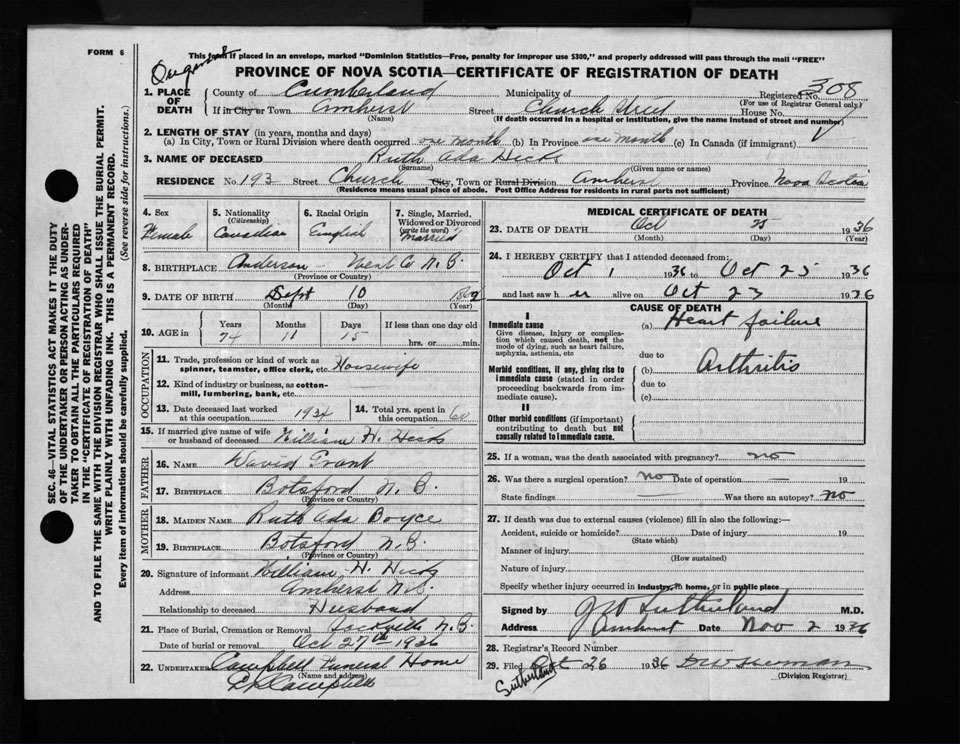 FORM 6
This form if placed in an envelope, marked "Dominion Statistics—Free, penalty for improper use $300," and properly addressed will pass through the mail "FREE"
PROVINCE OF NOVA SCOTIA—CERTIFICATE OF REGISTRATION OF DEATH
1. PLACE OF DEATH
County of Cumberland Municipality of Registered No. 308
(For use of Registrar General only)
If in City or Town Amherst Street Church Street House No.
(Name) (If death occurred in a hospital or institution, give the name instead of street and number)
2. LENGTH OF STAY (in years, months and days)
(a) In City, Town or Rural Division where death occurred one month (b) In Province one month (c) In Canada (if immigrant)
3. NAME OF DECEASED Ruth Ada Hicks
(Surname) (Given name or names)
RESIDENCE No. 193 Street Church City, Town or Rural Division Amherst Province Nova Scotia
(Residence means usual place of abode. Post Office Address for residents in rural parts not sufficient)
SEC. 46—VITAL STATISTICS ACT MAKES IT THE DUTY
OF THE UNDERTAKER OR PERSON ACTING AS UNDER-
TAKER TO OBTAIN ALL THE PARTICULARS REQUIRED
IN THE "CERTIFICATE OF REGISTRATION OF DEATH"
AND TO FILE THE SAME WITH THE DIVISION REGISTRAR WHO SHALL ISSUE THE BURIAL PERMIT.
WRITE PLAINLY WITH UNFADING INK. THIS IS A PERMANENT RECORD.
Every item of information should be carefully supplied. (See reverse side for instructions.)
4. Sex Female
5. Nationality (Citizenship) Canadian
6. Racial Origin English
7. Single, Married, Widowed or Divorced (write the word) Married
8. BIRTHPLACE Anderson West Co N.B.
(Province or Country)
9. DATE OF BIRTH Sept 10
(Month) (Day) (Year)
10. AGE in Years Months Days If less than one day old
74 11 15 hrs. or min.
OCCUPATION
11. Trade, profession or kind of work as spinner, teamster, office clerk, etc. Housewife
12. Kind of industry or business, as cotton-mill, lumbering, bank, etc.
13. Date deceased last worked at this occupation 1934
14. Total yrs. spent in this occupation 60
15. If married give name of wife or husband of deceased William H. Hicks
FATHER
16. NAME David Grant
17. BIRTHPLACE Botsford N.B.
(Province or Country)
MOTHER
18. MAIDEN NAME Ruth Ada Boyce
19. BIRTHPLACE Botsford N.B.
(Province or Country)
20. Signature of informant William H. Hicks
Address Amherst N.S.
Relationship to deceased Husband
21. Place of Burial, Cremation or Removal Sackville N.B.
Date of burial or removal Oct 27th 1936
22. UNDERTAKER Campbell Funeral Home
(Name and address)
Campbell
MEDICAL CERTIFICATE OF DEATH
23. DATE OF DEATH Oct 25 1936
(Month) (Day) (Year)
24. I HEREBY CERTIFY that I attended deceased from:
Oct 1 1936 to Oct 25 1936
and last saw her alive on Oct 23 1936
CAUSE OF DEATH
I
Immediate cause
Give disease, injury or complication which caused death, not the mode of dying, such as heart failure, asphyxia, asthenia, etc
(a) Heart failure
due to
Morbid conditions, if any, giving rise to immediate cause (stated in order proceeding backwards from immediate cause).
(b) Arthritis
due to
(c)
II
Other morbid conditions (if important) contributing to death but not causally related to immediate cause.
25. If a woman, was the death associated with pregnancy? no
26. Was there a surgical operation? no Date of operation — 19
State findings — Was there an autopsy? no
27. If death was due to external causes (violence) fill in also the following:—
Accident, suicide or homicide? Date of injury 19
(State which)
Manner of injury
(How sustained)
Nature of injury
Specify whether injury occurred in industry, in home, or in public place
Signed by J W Sutherland M.D.
Address Amherst Date Nov 2 1936
28. Registrar's Record Number
29. Filed Oct 26 1936
(Division Registrar)
Sutherland